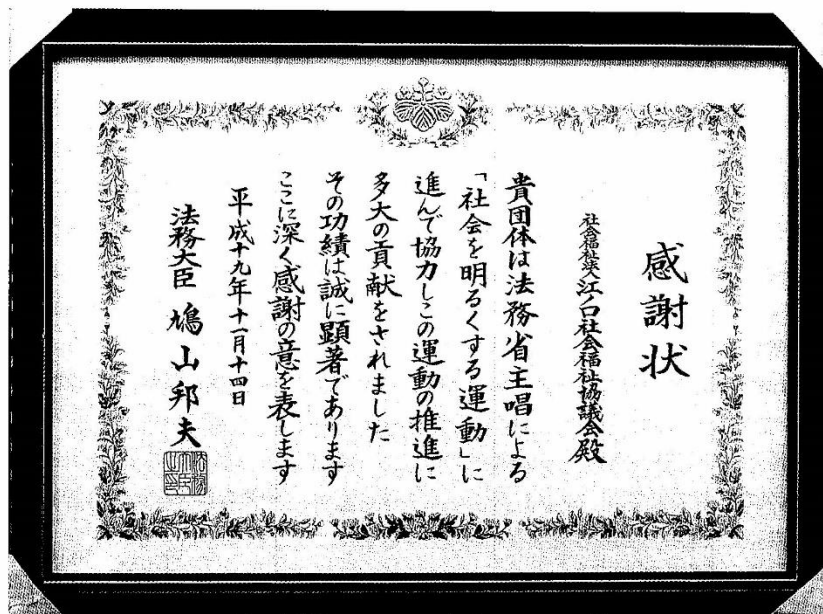 感謝状
社会福祉法人江ノ口社会福祉協議会殿
貴団体は法務省主唱による
「社会を明るくする運動」に
進んで協力しこの運動の推進に
多大の貢献をされました
その功績は誠に顕著であります
ここに深く感謝の意を表します
平成十九年十一月十四日
法務大臣 鳩山邦夫
法務大臣之印